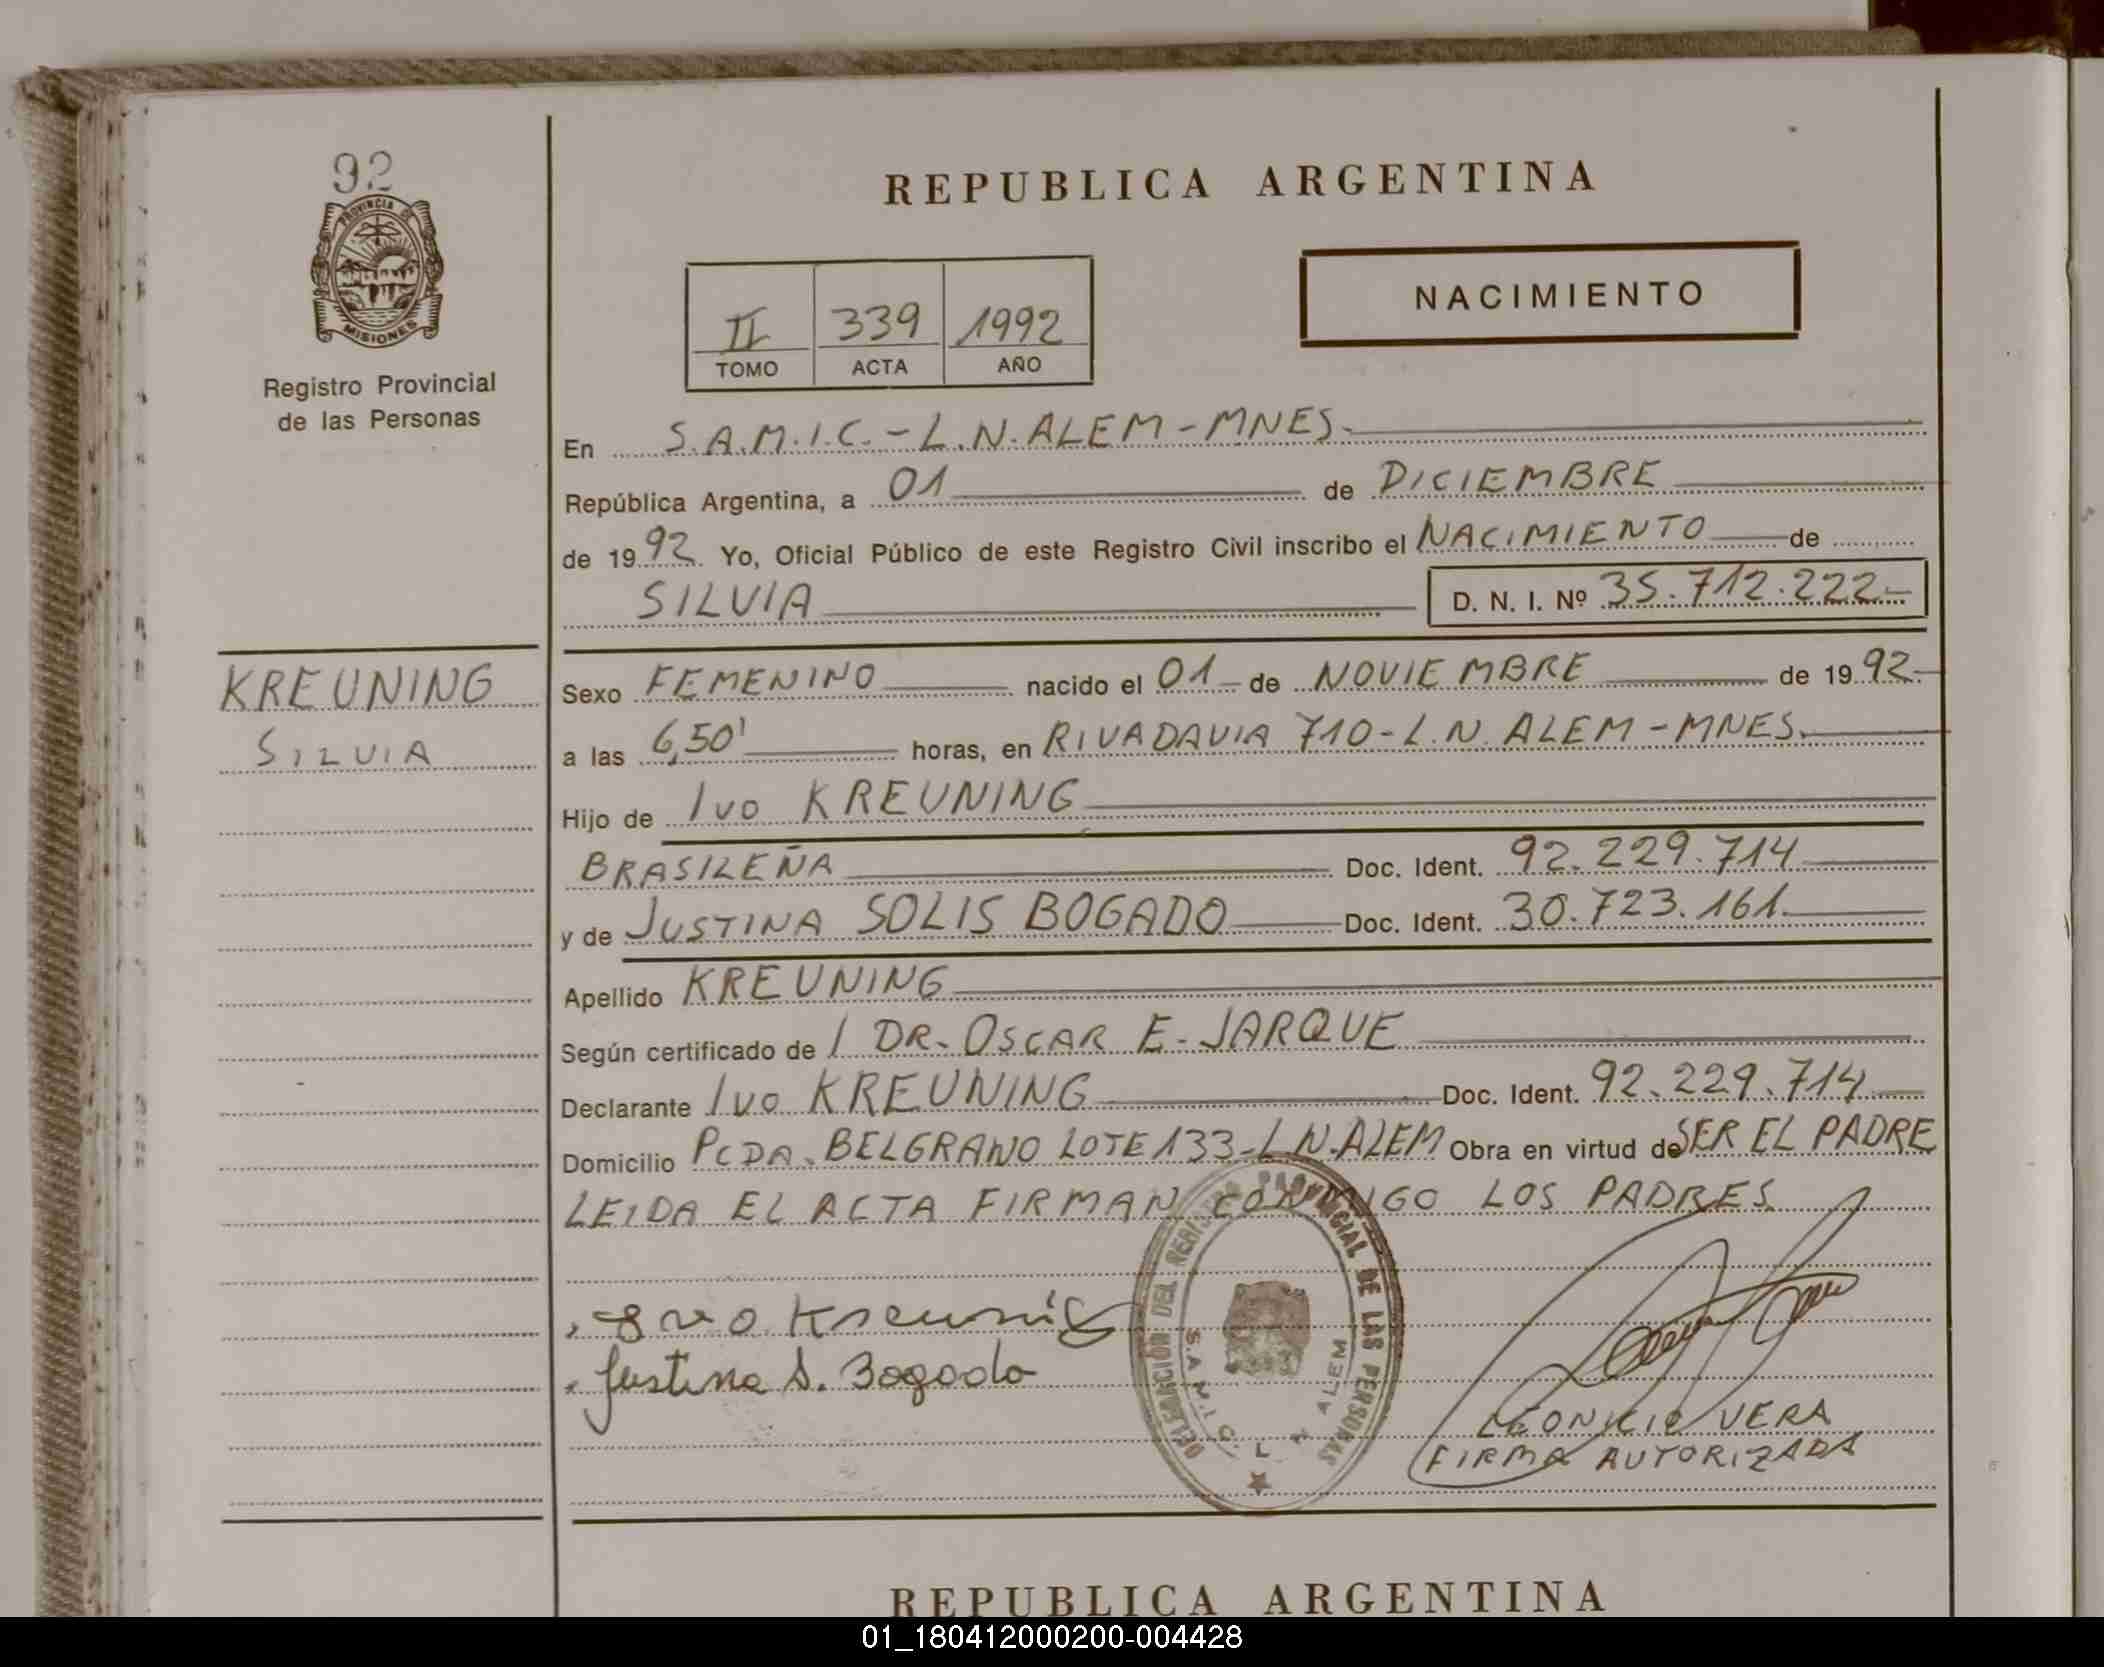 92
PROVINCIA DE
MISIONES
Registro Provincial
de las Personas
KREUNING
SILVIA
REPUBLICA ARGENTINA
II 339 1992
TOMO ACTA AÑO
NACIMIENTO
En S.A.M.I.C.-L.N.ALEM-MNES.
República Argentina, a 01 de DICIEMBRE
de 1992 Yo, Oficial Público de este Registro Civil inscribo el NACIMIENTO de
SILVIA D. N. I. Nº 35.712.222-
Sexo FEMENINO nacido el 01 de NOVIEMBRE de 1992-
a las 6,50' horas, en RIVADAVIA 710-L.N. ALEM-MNES.
Hijo de Ivo KREUNING
BRASILEÑA Doc. Ident. 92.229.714
y de JUSTINA SOLIS BOGADO Doc. Ident. 30.723.161.
Apellido KREUNING
Según certificado de / DR. OSCAR E. JARQUE
Declarante Ivo KREUNING Doc. Ident. 92.229.714
Domicilio PCDA. BELGRANO LOTE 133-L N.ALEM Obra en virtud de SER EL PADRE
LEIDA EL ACTA FIRMAN CONMIGO LOS PADRES
Ivo Kreuning
Justina S. Bogado
DELEGACION DEL REGISTRO PROVINCIAL DE LAS PERSONAS
L. N. ALEM
LEONICIO VERA
FIRMA AUTORIZADA
REPUBLICA ARGENTINA
01_180412000200-004428